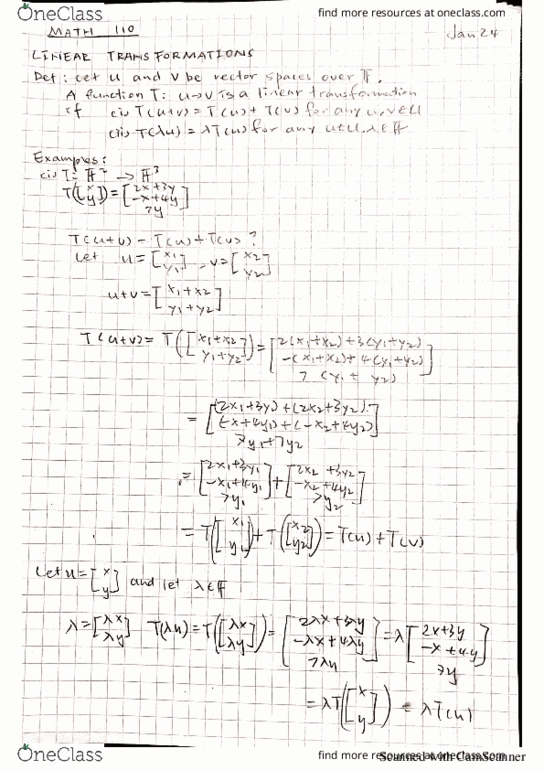 OneClass
find more resources at oneclass.com
MATH 110
Jan 24
LINEAR TRANSFORMATIONS
Def: Let U and V be vector spaces over F.
A function T: U→V is a linear transformation
if (i) T(u+v) = T(u) + T(v) for any u,v∈U
(ii) T(λu) = λT(u) for any u∈U, λ∈F
Examples:
(i) T: F² → F³
T([x y]) = [2x+3y -x+4y 7y]
T(u+v) = T(u) + T(v)?
Let u = [x₁ y₁], v = [x₂ y₂]
u+v = [x₁+x₂ y₁+y₂]
T(u+v) = T([x₁+x₂ y₁+y₂]) = [2(x₁+x₂)+3(y₁+y₂) -(x₁+x₂)+4(y₁+y₂) 7(y₁+y₂)]
= [(2x₁+3y₁)+(2x₂+3y₂) (-x+4y₁)+(-x₂+4y₂) 7y₁+7y₂]
= [2x₁+3y₁ -x₁+4y₁ 7y₁] + [2x₂+3y₂ -x₂+4y₂ 7y₂]
= T([x₁ y₁]) + T([x₂ y₂]) = T(u) + T(v)
Let u = [x y] and let λ∈F
λ = [λx λy] T(λu) = T([λx λy]) = [2λx+3λy -λx+4λy 7λy] = λ[2x+3y -x+4y 7y]
= λT([x y]) = λT(u)
OneClass
find more resources at oneclass.com
Scanned with CamScanner